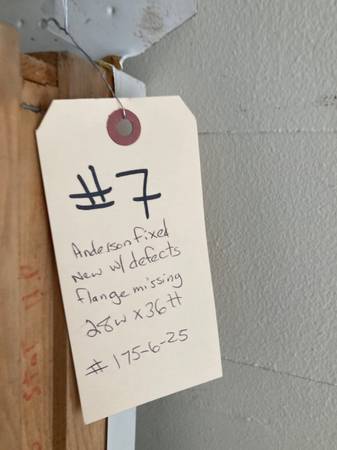 #7
Anderson fixed
New w/ defects
flange missing
28w x 36H
# 175-6-25